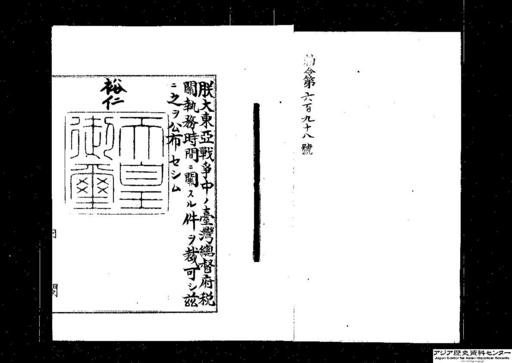 勅令第六百九十八號
朕大東亞戰爭中ノ臺灣總督府税
關執務時間ニ關スル件ヲ裁可シ茲
ニ之ヲ公布セシム
裕仁
天皇
御璽
アジア歴史資料センター
Japan Center for Asian Historical Records